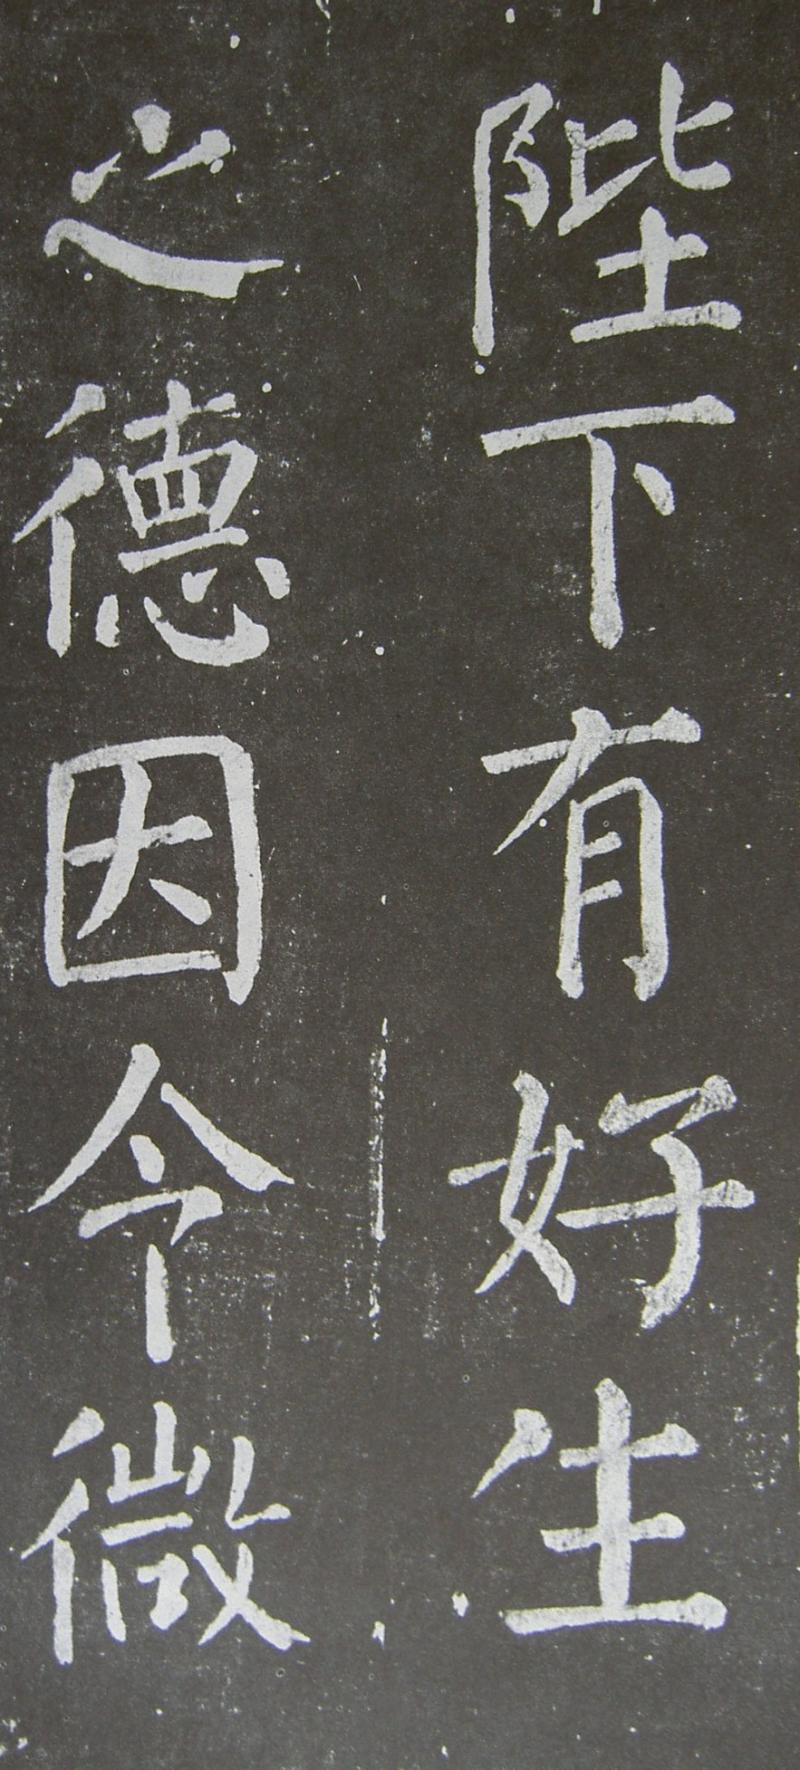 陛下有好生
之德因令微